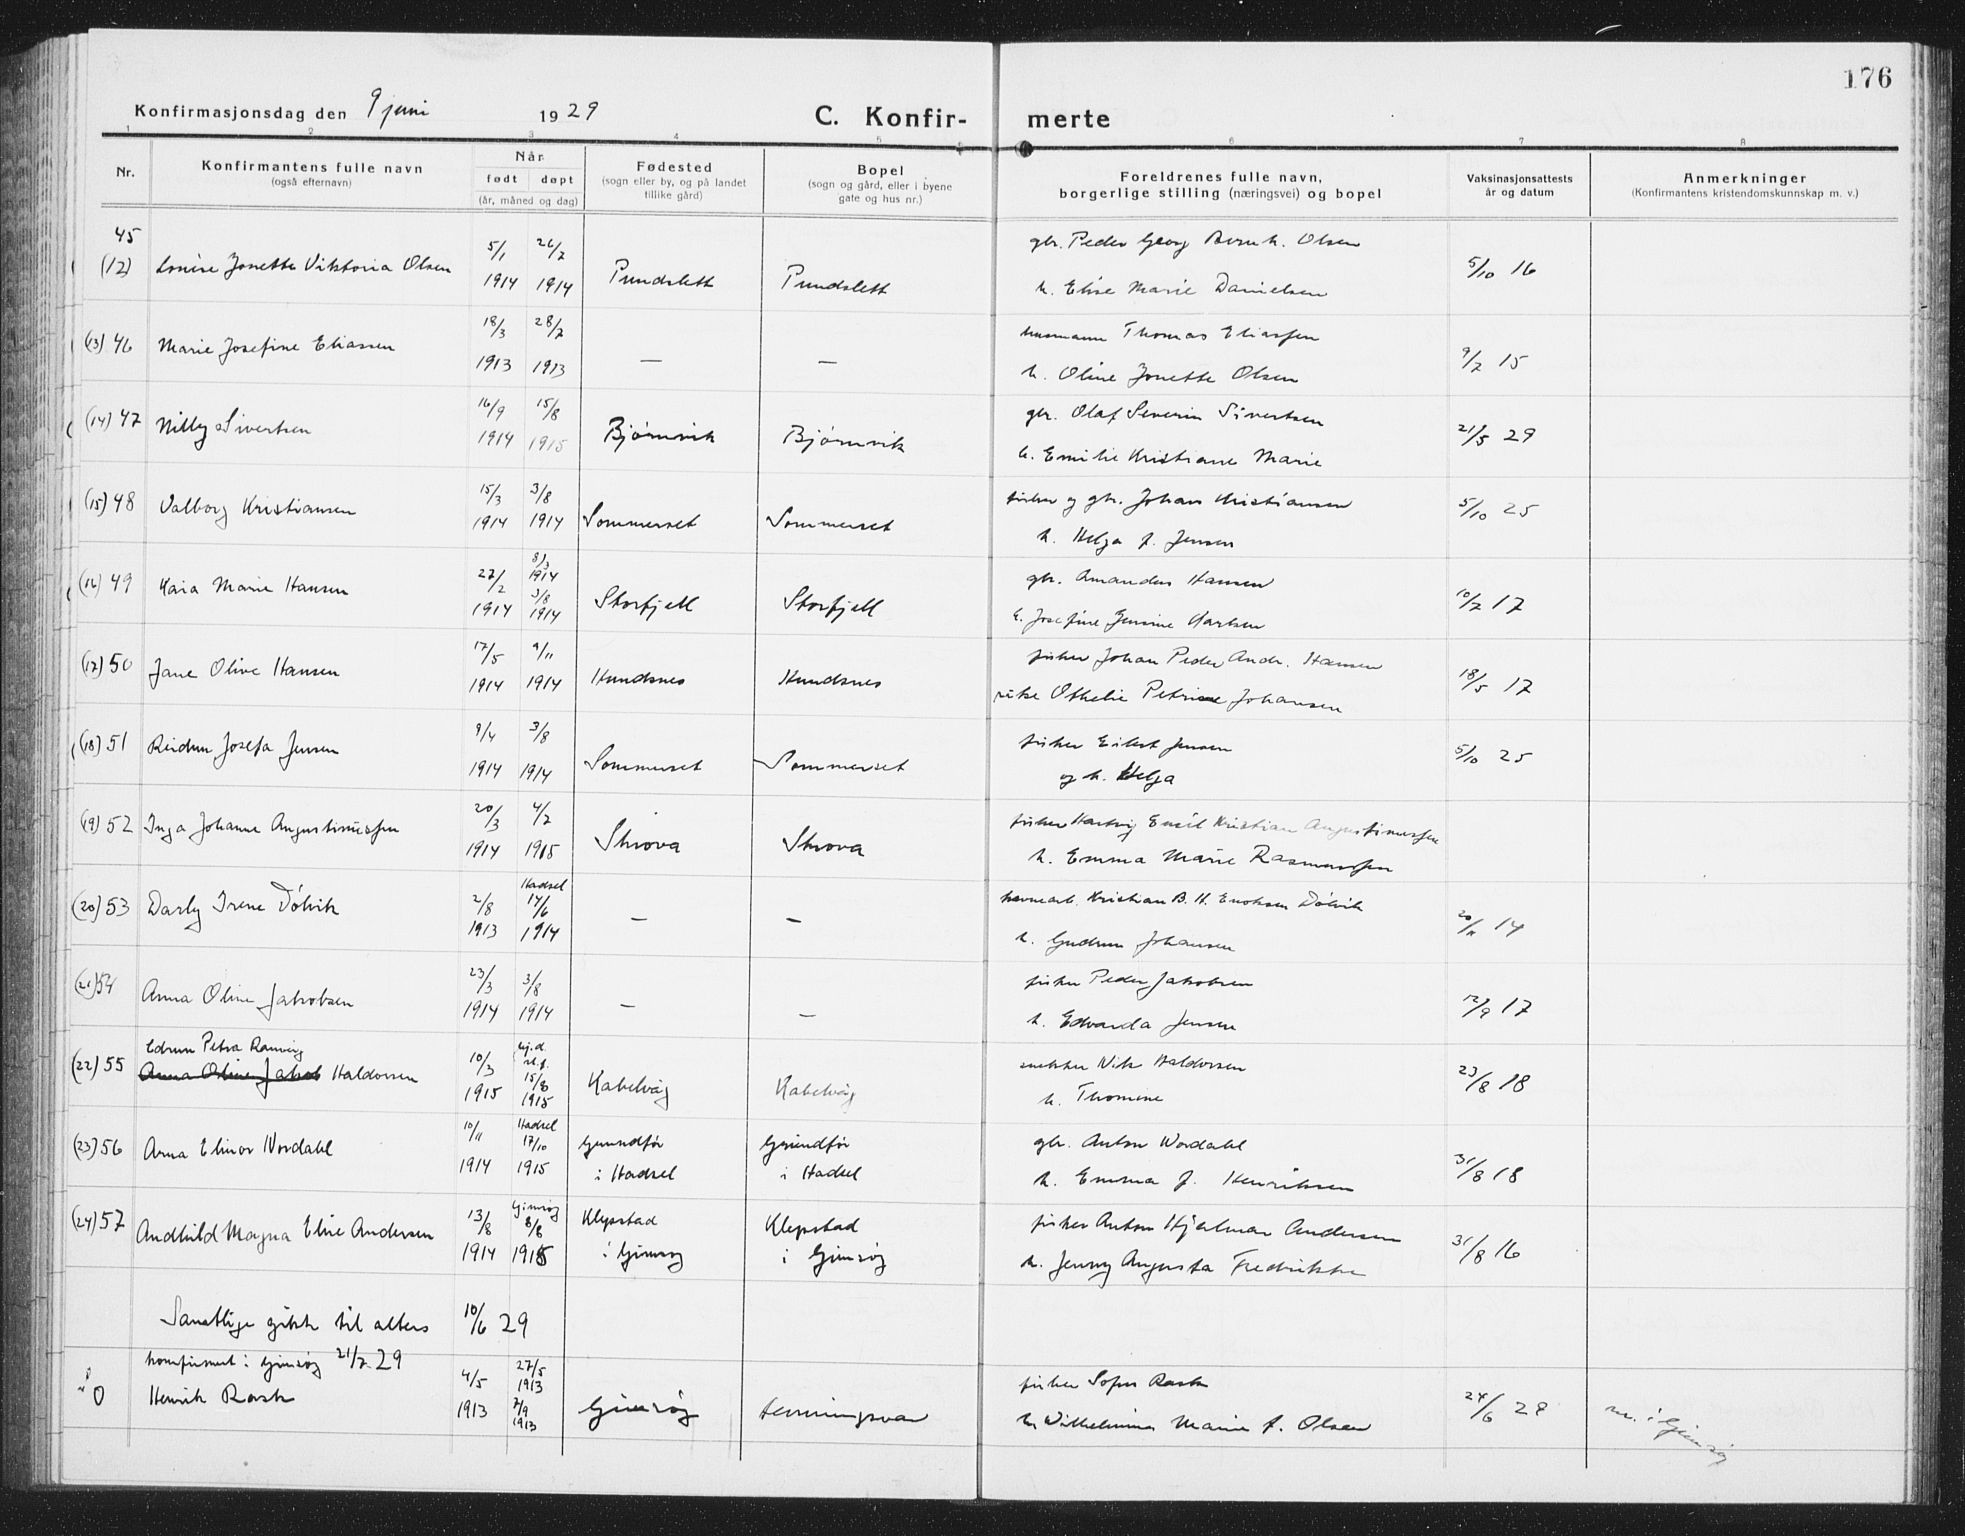 176
Konfirmasjonsdag den 9 juni 1929
C. Konfir- merte
1 2 3 4 5 6 7 8
Nr.
Konfirmantens fulle navn
(også efternavn)
Når
født døpt
(år, måned og dag)
Fødested
(sogn eller by, og på landet
tillike gård)
Bopel
(sogn og gård, eller i byene
gate og hus nr.)
Foreldrenes fulle navn,
borgerlige stilling (næringsvei) og bopel
Vaksinasjonsattests
år og datum
Anmerkninger
(Konfirmantens kristendomskunnskap m. v.)
45 5/1 26/7 gbr. Peder Georg Bernh. Olsen
(12) Louise Jonette Viktoria Olsen 1914 1914 Pundslett Pundslett 5/10 16
h. Elise Marie Danielsen
(13) 46 Marie Josefine Eliassen 18/3 28/7 husmann Thomas Eliassen
1913 1913 — — 9/7 15
h. Oline Jonette Olsen
(14) 47 Nilly Sivertsen 16/9 15/8 gbr. Olaf Severin Sivertsen
1914 1915 Bjørnvik Bjørnvik 21/5 29
h. Emilie Kristiane Marie
(15) 48 Valborg Kristiansen 15/3 3/8 fisker og gbr. Johan Kristiansen
1914 1914 Sommerset Sommerset 5/10 25
h. Helga f. Jensen
(16) 49 Kaia Marie Hansen 27/2 8/3 1914 gbr. Amandus Hansen
1914 3/8 1914 Storfjell Storfjell 10/7 17
h. Josefine Jensine Karlsen
(17) 50 Jane Olive Hansen 17/5 9/11 fisker Johan Peder Andr. Hansen
1914 1914 Hundsnes Hundsnes 18/5 17
Othelie Petrine Johansen
(18) 51 Reidun Josefa Jensen 9/4 3/8 fisker Eilert Jensen
1914 1914 Sommerset Sommerset 5/10 25
og h. Helga
(19) 52 Inga Johanne Augustinussen 20/3 4/7 fisker Hartvig Emil Kristian Augustinussen
1914 1915 Skrova Skrova
h. Emma Marie Rasmussen
(20) 53 Darly Irene Dólvik 2/8 Hadsel 14/6 havnearb. Kristian B. H. Enoksen Dólvik
1913 1914 — — 14
h. Gudrun Johansen
(21) 54 Anna Oline Jakobsen 23/3 3/8 fisker Peder Jakobsen
1914 1914 — — 12/9 17
h. Edvarda Jensen
Petra
(22) 55 Anna Oline Jakob Haldorsen 10/3 hj.d. 15/8 Nik Haldorsen
1915 1915 Kabelvåg Kabelvåg 23/8 18
h. Thomine
(23) 56 Anna Elinor Nordahl 10/11 Hadsel 17/10 Grundfør Grundfør gbr. Anton Nordahl
1914 1915 i Hadsel i Hadsel 31/8 18
h. Emma f. Henriksen
(24) 57 Andhild Magna Elise Andersen 13/8 Gimsøy 8/8 Klepstad Klepstad fisker Anton Hjalmar Andersen
1914 1915 i Gimsøy i Gimsøy 31/8 16
h. Jenny Augusta Fredrikke
Samtlige gikk til alters 10/6 29
konfirmert i Gimsøy 21/7 29
0 Henrik Rask 4/5 1913 27/5 1913 7/9 1913 Gimsøy Henningsvær fisker Sofus Rask
h. Wilhelmine Marie f. Olsen 24/6 29 i Gimsøy